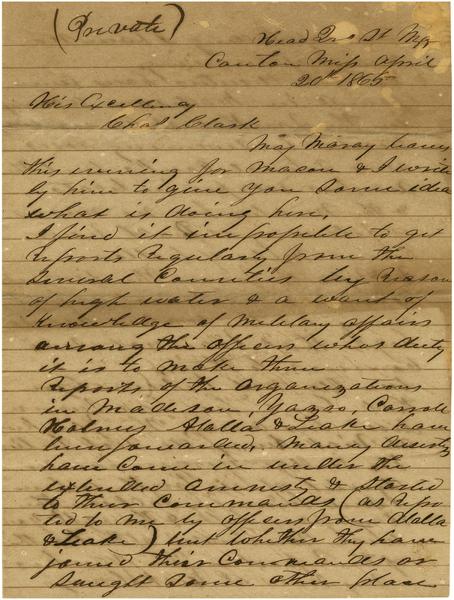 (Private)
Head Qrs St
Canton Miss April
20th 1865
His Excellency
Chas Clark
Maj leaves
this evening for Macon & I write
by him to give you some idea
what is doing here.
I find it impossible to get
reports regularly from the
Several Counties by reason
of high water & a want of
knowledge of military affairs
among the officers whos duty
it is to make them
Reports of the organizations
in Madison, Yazoo, Carroll
Holmes Atalla & Leake have
been forwarded. Many deserters
have come in under the
extended amnesty & started
to their Commands (as repo
ted to me by officers from Atalla
& Leake) but whether they have
joined their Commands or
Sought Some other place